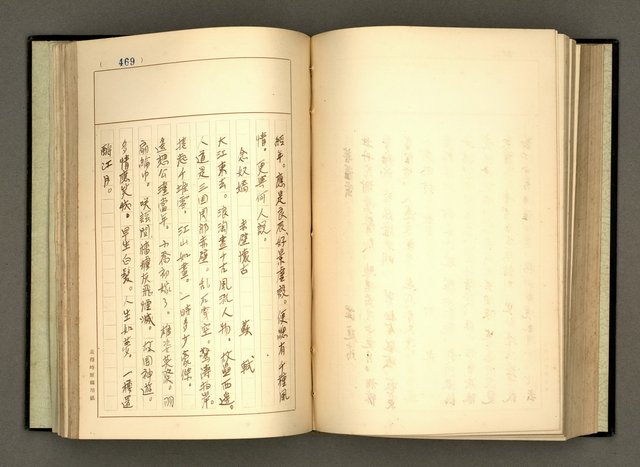 (469)
經年。應是良辰好景虛設。便總有千種風
情。更與何人說。
念奴嬌 赤壁懷古 蘇軾
大江東去。浪淘盡千古風流人物。故壘西邊。
人道是三國周郎赤壁。乱石穿空。驚濤拍岸。
捲起千堆雪。江山如畫。一時多少豪傑。
遙想公瑾當年。小喬初嫁了。雄姿英發。羽
扇綸巾。談笑間檣櫓灰飛煙滅。故国神遊。
多情應笑我。早生白髮。人生如夢。一樽還
酹江月。